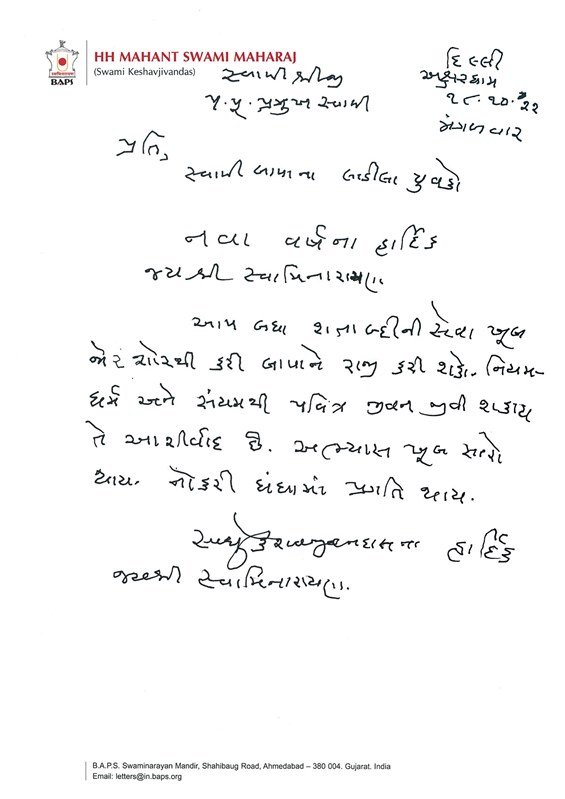 HH MAHANT SWAMI MAHARAJ
(Swami Keshavjivandas)
BAPS
સ્વામીશ્રીજી
પ.પૂ. પ્રમુખ સ્વામી
દિલ્લી
અક્ષરધામ
૧૮.૧૦.૨૨
મંગળવાર
પ્રતિ,
સ્વામી બાપાના લાડીલા યુવકો
નવા વર્ષના હાર્દિક
જયશ્રી સ્વામિનારાયણ.
આમ બધા શતાબ્દીની સેવા ખૂબ
જોરશોરથી કરી બાપાને રાજી કરી શકો. નિયમ-
ધર્મ અને સંયમથી પવિત્ર જીવન જીવી શકાય
તે આશીર્વાદ છે. અભ્યાસ ખૂબ સારો
થાય. નોકરી ધંધામાં પ્રગતિ થાય.
સાધુ કેશવજીવનદાસના હાર્દિક
જયશ્રી સ્વામિનારાયણ.
B.A.P.S. Swaminarayan Mandir, Shahibaug Road, Ahmedabad – 380 004. Gujarat. India
Email: letters@in.baps.org